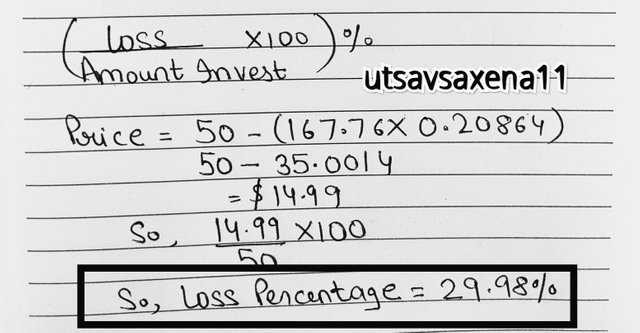 (Loss / Amount Invest ×100) %
utsavsaxena11
Price = 50 - (167.76× 0.20864)
50 - 35.0014
= $ 14.99
So, 14.99 ×100
50
So, Loss Percentage = 29.98%